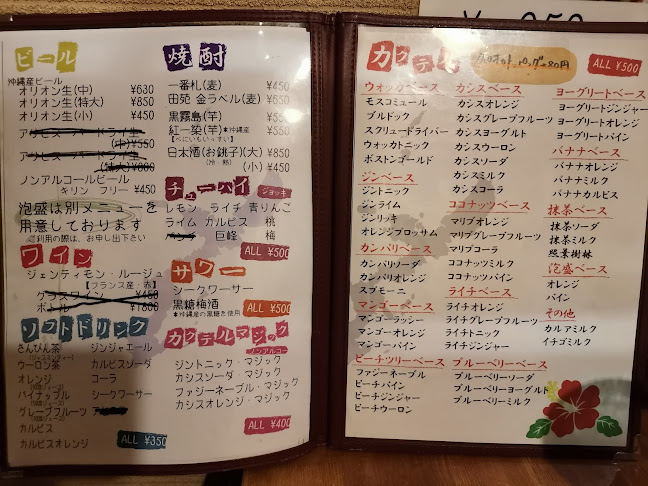 ビール
沖縄産ビール
オリオン生(中) ¥630
オリオン生(特大) ¥850
オリオン生(小) ¥450
アサヒスーパードライ生
(中)¥550
(特大)¥800
ノンアルコールビール
キリン フリー ¥450
泡盛は別メニューを
用意しております
ご利用の際は、お申し出下さい
ワイン
ジェンティモン・ルージュ
【フランス産・赤】
グラスワイン ¥450
ボトル ¥1800
ソフトドリンク
さんぴん茶
(ジャスミンティー)
ウーロン茶
オレンジ
(100%ジュース)
パイナップル
(100%ジュース)
グレープフルーツ
カルピス
カルピスオレンジ
ジンジャエール
カルピスソーダ
コーラ
シークワーサー
ALL ¥350
焼酎
一番札(麦) ¥450
田苑 金ラベル(麦) ¥650
黒霧島(芋) ¥550
紅一染(芋)*沖縄産 ¥550
【べにいもいっすい】
日本酒(お銚子)(大) ¥850
(冷 熱) (小) ¥450
チューハイ ジョッキ
レモン ライチ 青りんご
ライム カルピス 桃
巨峰 梅
ALL ¥500
サワー
シークワーサー
黒糖梅酒
【*沖縄産の黒糖を使用】
ALL ¥500
カクテルマジック
ノンアルコール
ジントニック・マジック
カシスソーダ・マジック
ファジーネーブル・マジック
カシスオレンジ・マジック
ALL ¥400
カクテル
ALL ¥500
ウォッカベース
モスコミュール
ブルドック
スクリュードライバー
ウォッカトニック
ボストンゴールド
ジンベース
ジントニック
ジンライム
ジンリッキ
オレンジブロッサム
カンパリベース
カンパリソーダ
カンパリオレンジ
スプモーニ
マンゴーベース
マンゴーラッシー
マンゴーオレンジ
マンゴーパイン
ピーチツリーベース
ファジーネーブル
ピーチパイン
ピーチジンジャー
ピーチウーロン
カシスベース
カシスオレンジ
カシスグレープフルーツ
カシスヨーグルト
カシスウーロン
カシスソーダ
カシスミルク
カシスコーラ
ココナッツベース
マリブオレンジ
マリブグレープフルーツ
マリブコーラ
ココナッツミルク
ココナッツパイン
ライチベース
ライチオレンジ
ライチグレープフルーツ
ライチトニック
ライチジンジャー
ブルーベリーベース
ブルーベリーソーダ
ブルーベリーヨーグルト
ブルーベリーミルク
ヨーグリートベース
ヨーグリートジンジャー
ヨーグリートオレンジ
ヨーグリートパイン
バナナベース
バナナオレンジ
バナナミルク
バナナカルピス
抹茶ベース
抹茶ソーダ
抹茶ミルク
照葉樹林
泡盛ベース
オレンジ
パイン
その他
カルアミルク
イチゴミルク